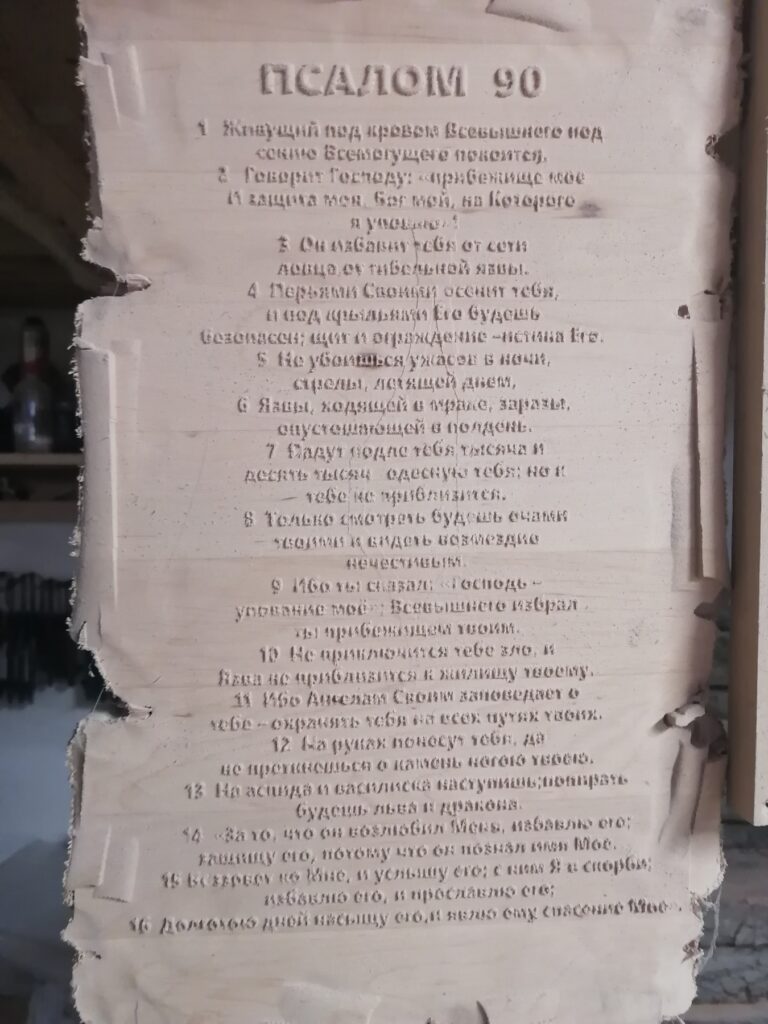 ПСАЛОМ 90
1 Живущий под кровом Всевышнего под
сению Всемогущего покоится,
2 Говорит Господу: «прибежище мое
И защита моя, Бог мой, на Которого
я уповаю»!
3 Он избавит тебя от сети
ловца, от гибельной язвы.
4 Перьями Своими осенит тебя,
и под крыльями Его будешь
безопасен; щит и ограждение –истина Его.
5 Не убоишься ужасов в ночи,
стрелы, летящей днем,
6 Язвы, ходящей в мраке, заразы,
опустошающей в полдень.
7 Падут подле тебя тысяча и
десять тысяч одесную тебя; но к
тебе не приблизится.
8 Только смотреть будешь очами
твоими и видеть возмездие
нечестивым.
9 Ибо ты сказал: «Господь –
упование моё»; Всевышнего избрал
ты прибежищем твоим.
10 Не приключится тебе зло, и
Язва не приблизится к жилищу твоему.
11 Ибо Ангелам Своим заповедает о
тебе – охранять тебя на всех путях твоих.
12 На руках понесут тебя, да
не преткнешься о камень ногою твоею.
13 На аспида и василиска наступишь;попирать
будешь льва и дракона.
14 «За то, что он возлюбил Меня, избавлю его;
защищу его, потому что он познал имя Мое.
15 Воззовет ко Мне, и услышу его; с ним Я в скорби;
избавлю его, и прославлю его;
16 Долготою дней насыщу его,и явлю ему спасение Мое».